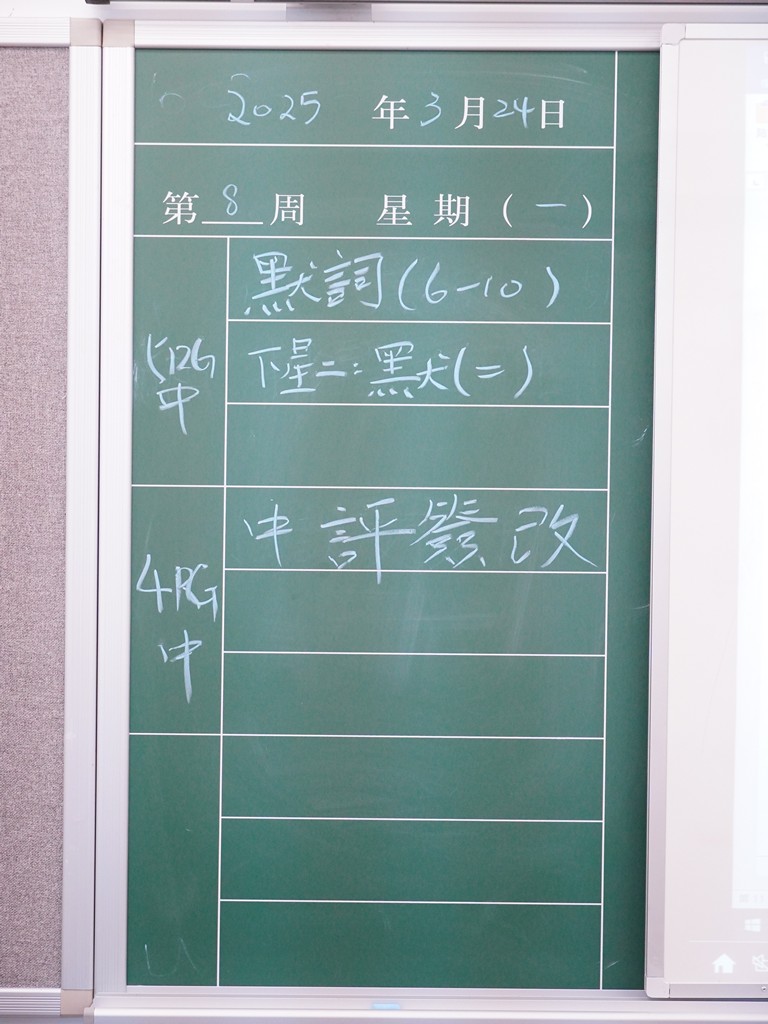 2025 年3月24日
第8周 星期(一)
默詞(6-10)
下星二:默(二)
5RG
中
中評簽改
4RG
中